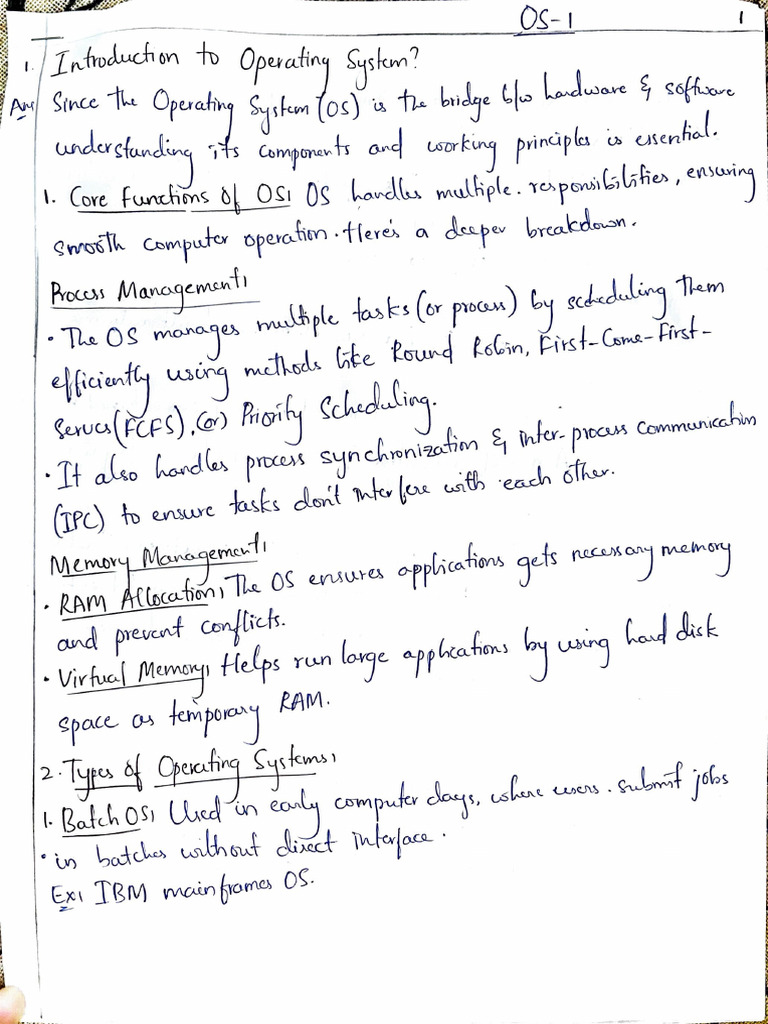 OS-1 1
1. Introduction to Operating System?
Ans Since the Operating System (OS) is the bridge b/w hardware & software
understanding its components and working principles is essential.
1. Core Functions of OS: OS handles multiple. responsibilities, ensuring
smooth computer operation. Here's a deeper breakdown.
Process Management:
• The OS manages multiple tasks (or process) by scheduling them
efficiently using methods like Round Robin, First-Come-First-
Serves (FCFS), (or) Priority Scheduling.
• It also handles process synchronization & inter-process communication
(IPC) to ensure tasks don't interfere with each other.
Memory Management:
• RAM Allocation: The OS ensures applications gets necessary memory
and prevent conflicts.
• Virtual Memory: Helps run large applications by using hard disk
space as temporary RAM.
2. Types of Operating Systems:
1. Batch OS: Used in early computer days, where users. submit jobs
• in batches without direct interface.
Ex: IBM mainframes OS.